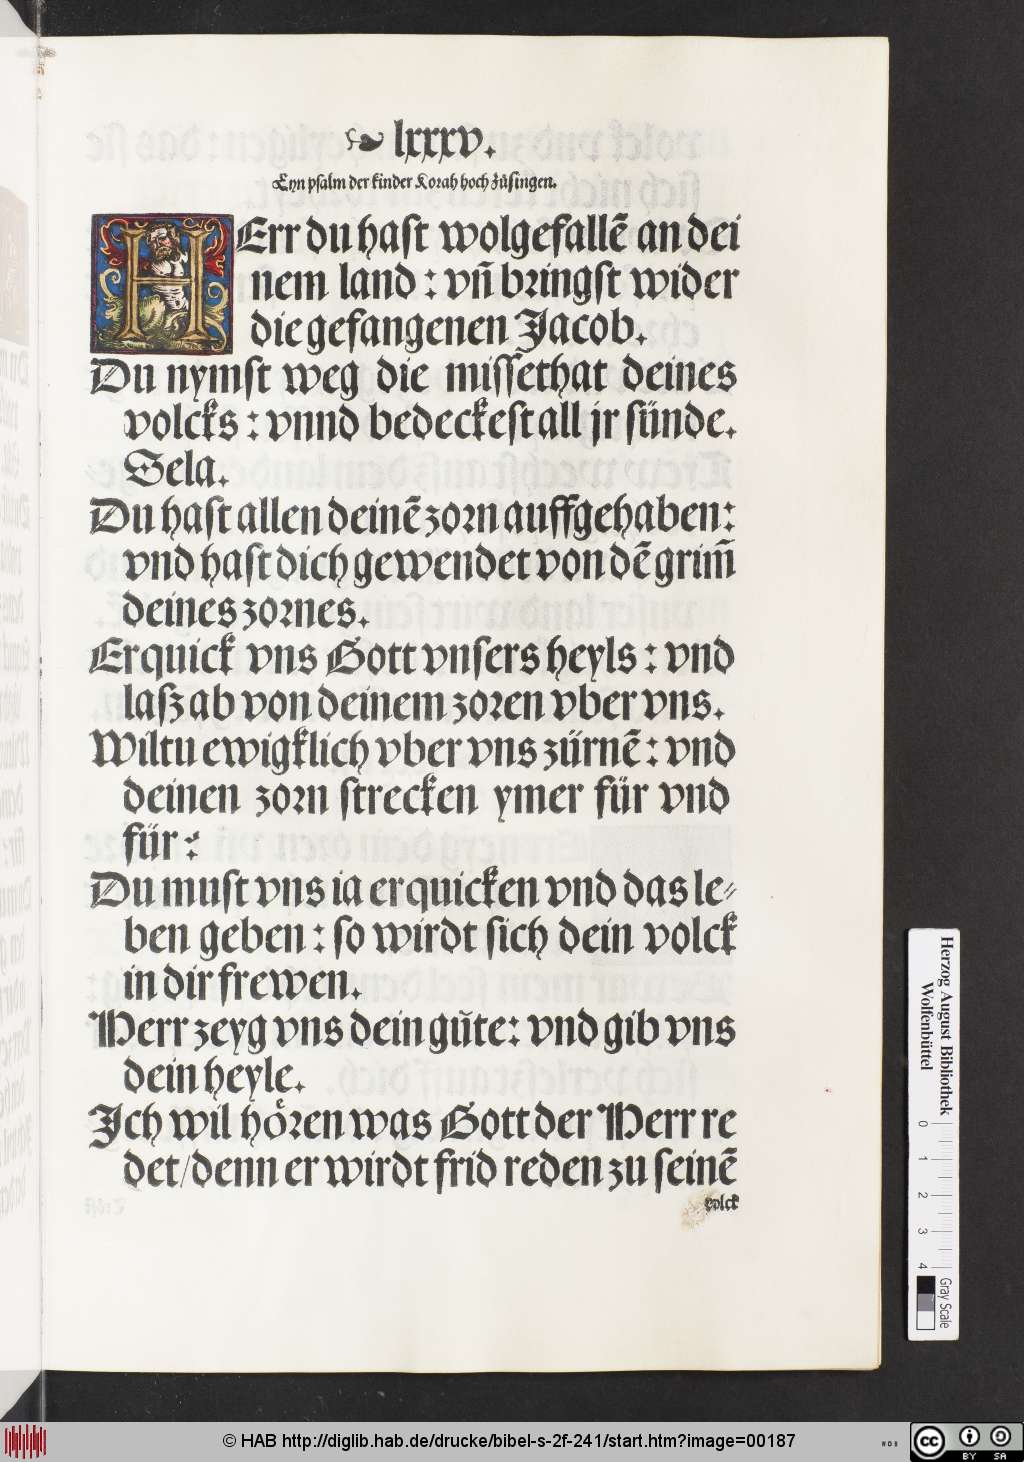 ☙ lxxxv.
Eyn psalm der kinder Korah hoch zůsingen.
HErr du hast wolgefallē an dei
nem land : vñ bringst wider
die gefangenen Jacob.
Du nymst weg die missethat deines
volcks : vnnd bedeckest all jr sünde.
Sela.
Du hast allen deinē zorn auffgehaben:
vnd hast dich gewendet von dē grim̄
deines zornes.
Erquick vns Gott vnsers heyls : vnd
lasz ab von deinem zoren vber vns.
Wiltu ewigklich vber vns zürnē : vnd
deinen zorn strecken ymer für vnd
für :
Du must vns ia erquicken vnd das le⸗
ben geben : so wirdt sich dein volck
in dir frewen.
Herr zeyg vns dein gůte: vnd gib vns
dein heyle.
Jch wil hoͤren was Gott der Herr re
det/denn er wirdt frid reden zu seinē
volck
Herzog August Bibliothek
Wolfenbüttel
0 1 2 3 4
Gray Scale
© HAB http://diglib.hab.de/drucke/bibel-s-2f-241/start.htm?image=00187
WDB
cc BY SA